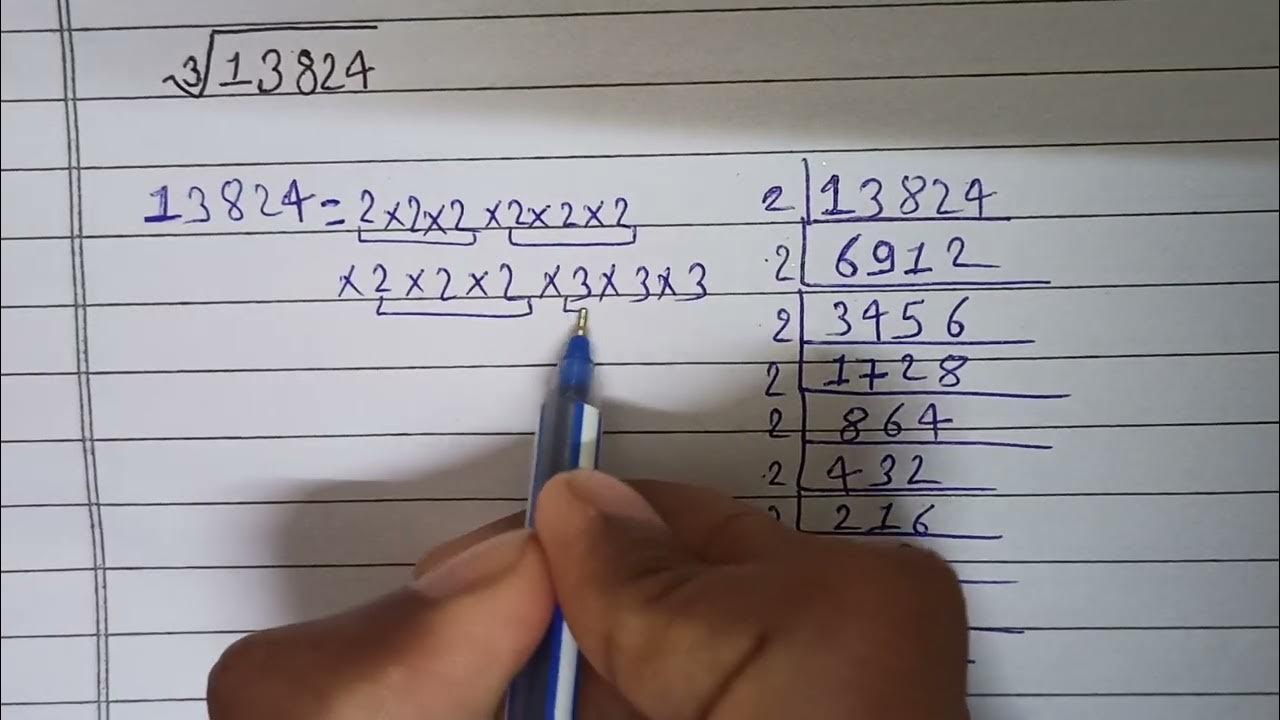 ∛13824
13824=2×2×2×2×2×2
×2×2×2×3×3×3
2 | 13824
2 | 6912
2 | 3456
2 | 1728
2 | 864
2 | 432
216